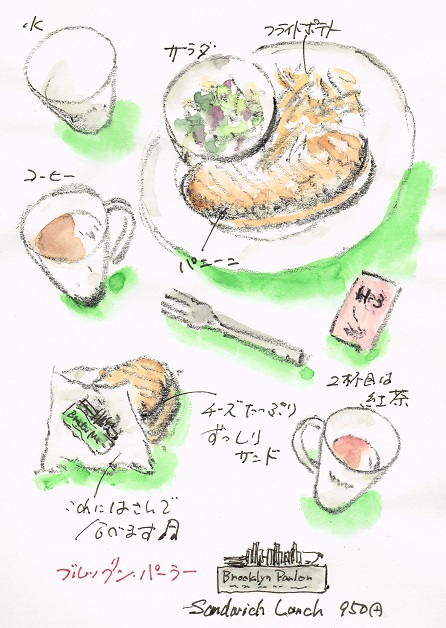 水
サラダ
フライドポテト
コーヒー
パニーニ
2杯目は
紅茶
チーズたっぷり
ずっしり
サンド
これにはさんで
食べます♫
ブルックリン・パーラー
Brooklyn Parlor
Sandwich Lunch 950円